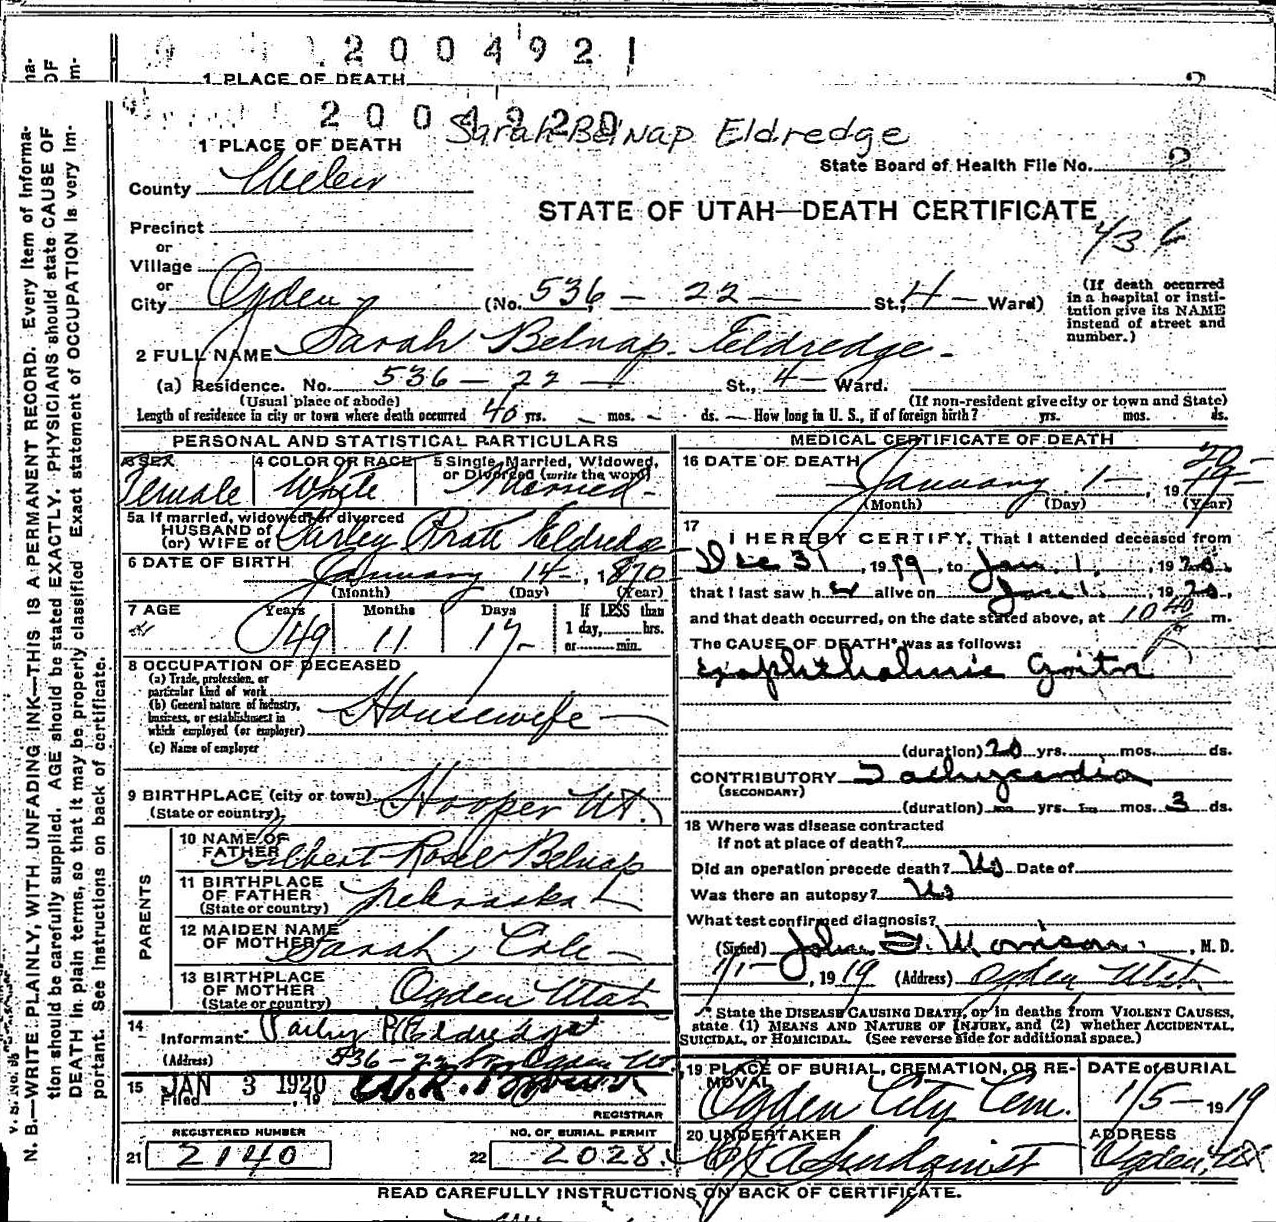 2004921
1 PLACE OF DEATH
2004920
Sarah Belnap Eldredge
1 PLACE OF DEATH
State Board of Health File No. 2
County Weber
STATE OF UTAH—DEATH CERTIFICATE
436
Precinct
or
Village
or
City Ogden (No. 536 - 22 — St., 4 — Ward)
(If death occurred in a hospital or institution give its NAME instead of street and number.)
2 FULL NAME Sarah Belnap Eldredge
(a) Residence. No. 536 - 22 — St., 4 — Ward.
(Usual place of abode) (If non-resident give city or town and State)
Length of residence in city or town where death occurred 40 yrs. - mos. - ds. — How long in U. S., if of foreign birth? yrs. mos. ds.
PERSONAL AND STATISTICAL PARTICULARS
3 SEX Female
4 COLOR OR RACE White
5 Single, Married, Widowed, or Divorced (write the word) Married
5a If married, widowed or divorced
HUSBAND of
(or) WIFE of Parley Pratt Eldredge
6 DATE OF BIRTH January 14 -, 1870
(Month) (Day) (Year)
7 AGE Years 49 Months 11 Days 17 If LESS than 1 day, hrs. or min.
8 OCCUPATION OF DECEASED
(a) Trade, profession, or particular kind of work
(b) General nature of industry, business, or establishment in which employed (or employer)
Housewife
(c) Name of employer
9 BIRTHPLACE (city or town) Hooper Ut.
(State or country)
PARENTS
10 NAME OF FATHER Gilbert Rosel Belnap
11 BIRTHPLACE OF FATHER Nebraska
(State or country)
12 MAIDEN NAME OF MOTHER Sarah Cole
13 BIRTHPLACE OF MOTHER Ogden Utah
(State or country)
14 Informant Parley P. Eldredge
(Address) 536 - 22 Ogden Ut.
15 Filed JAN 3 1920, 19
REGISTRAR
REGISTERED NUMBER
21 2140
NO. OF BURIAL PERMIT
22 2028
MEDICAL CERTIFICATE OF DEATH
16 DATE OF DEATH January 1 -, 19
(Month) (Day) (Year)
17 I HEREBY CERTIFY, That I attended deceased from
Dec 31, 1919, to Jan. 1., 1920.
that I last saw her alive on Jan 1., 1920,
and that death occurred, on the date stated above, at 10 40 P m.
The CAUSE OF DEATH* was as follows:
Exophthalmic Goitre
(duration) 20 yrs. mos. ds.
CONTRIBUTORY Tachycardia
(SECONDARY)
(duration) - yrs. - mos. 3 ds.
18 Where was disease contracted
If not at place of death?
Did an operation precede death? No Date of
Was there an autopsy? No
What test confirmed diagnosis?
(Signed) John F. Morrison, M. D.
1/1 -, 1919 (Address) Ogden Utah
* State the DISEASE CAUSING DEATH, or in deaths from VIOLENT CAUSES,
state (1) MEANS AND NATURE OF INJURY, and (2) whether ACCIDENTAL,
SUICIDAL, or HOMICIDAL. (See reverse side for additional space.)
19 PLACE OF BURIAL, CREMATION, OR REMOVAL Ogden City Cem.
DATE of BURIAL 1/5 — 1919
20 UNDERTAKER
ADDRESS Ogden, Ut
READ CAREFULLY INSTRUCTIONS ON BACK OF CERTIFICATE.
N. B.—WRITE PLAINLY, WITH UNFADING INK—THIS IS A PERMANENT RECORD. Every item of information should be carefully supplied. AGE should be stated EXACTLY. PHYSICIANS should state CAUSE OF
DEATH in plain terms, so that it may be properly classified. Exact statement of OCCUPATION is very important. See instructions on back of certificate.